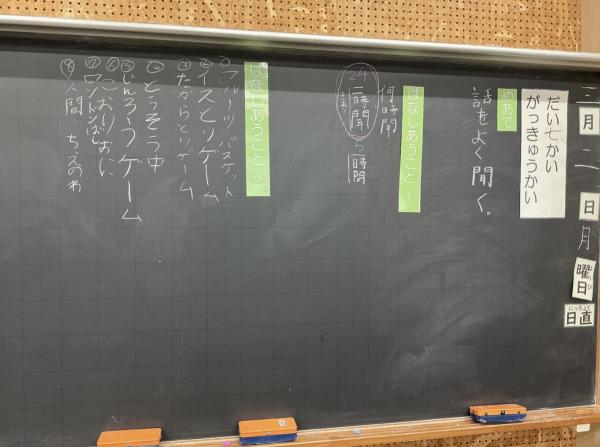 三月二日月曜日
ようび
日直
にっちょく
だい七かい
がっきゅうかい
めあて
話をよく聞く。
はなしあうこと 1
何時間
24
二時間
5時間
はなしあうこと 2
①フルーツバスケット
②イスとりゲーム
③たからとりゲーム
④とうそう中
⑤じんろうゲーム
⑥こおりおに
⑦ロンドンばし
⑧人間 ちえのわ